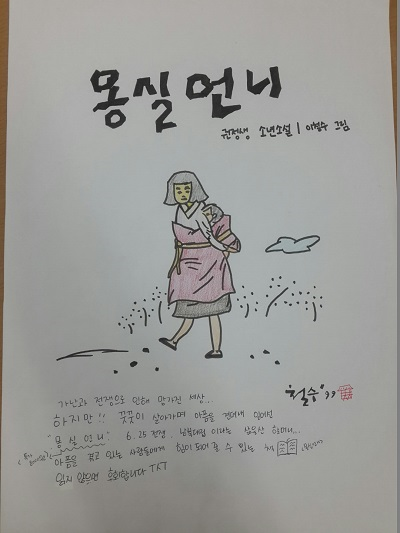 몽실 언니
권정생 소년소설 | 이철수 그림
가난과 전쟁으로 인해 망가진 세상..
하지만!! 꿋꿋이 살아가며 아픔을 견뎌낸
"몽실언니" 6.25 전쟁, 남북대립 이라는
아픔을 겪고 있는 사람들에게 힘이 되어 줄 수 있는 책
읽지 않으면 후회합니다 TAT